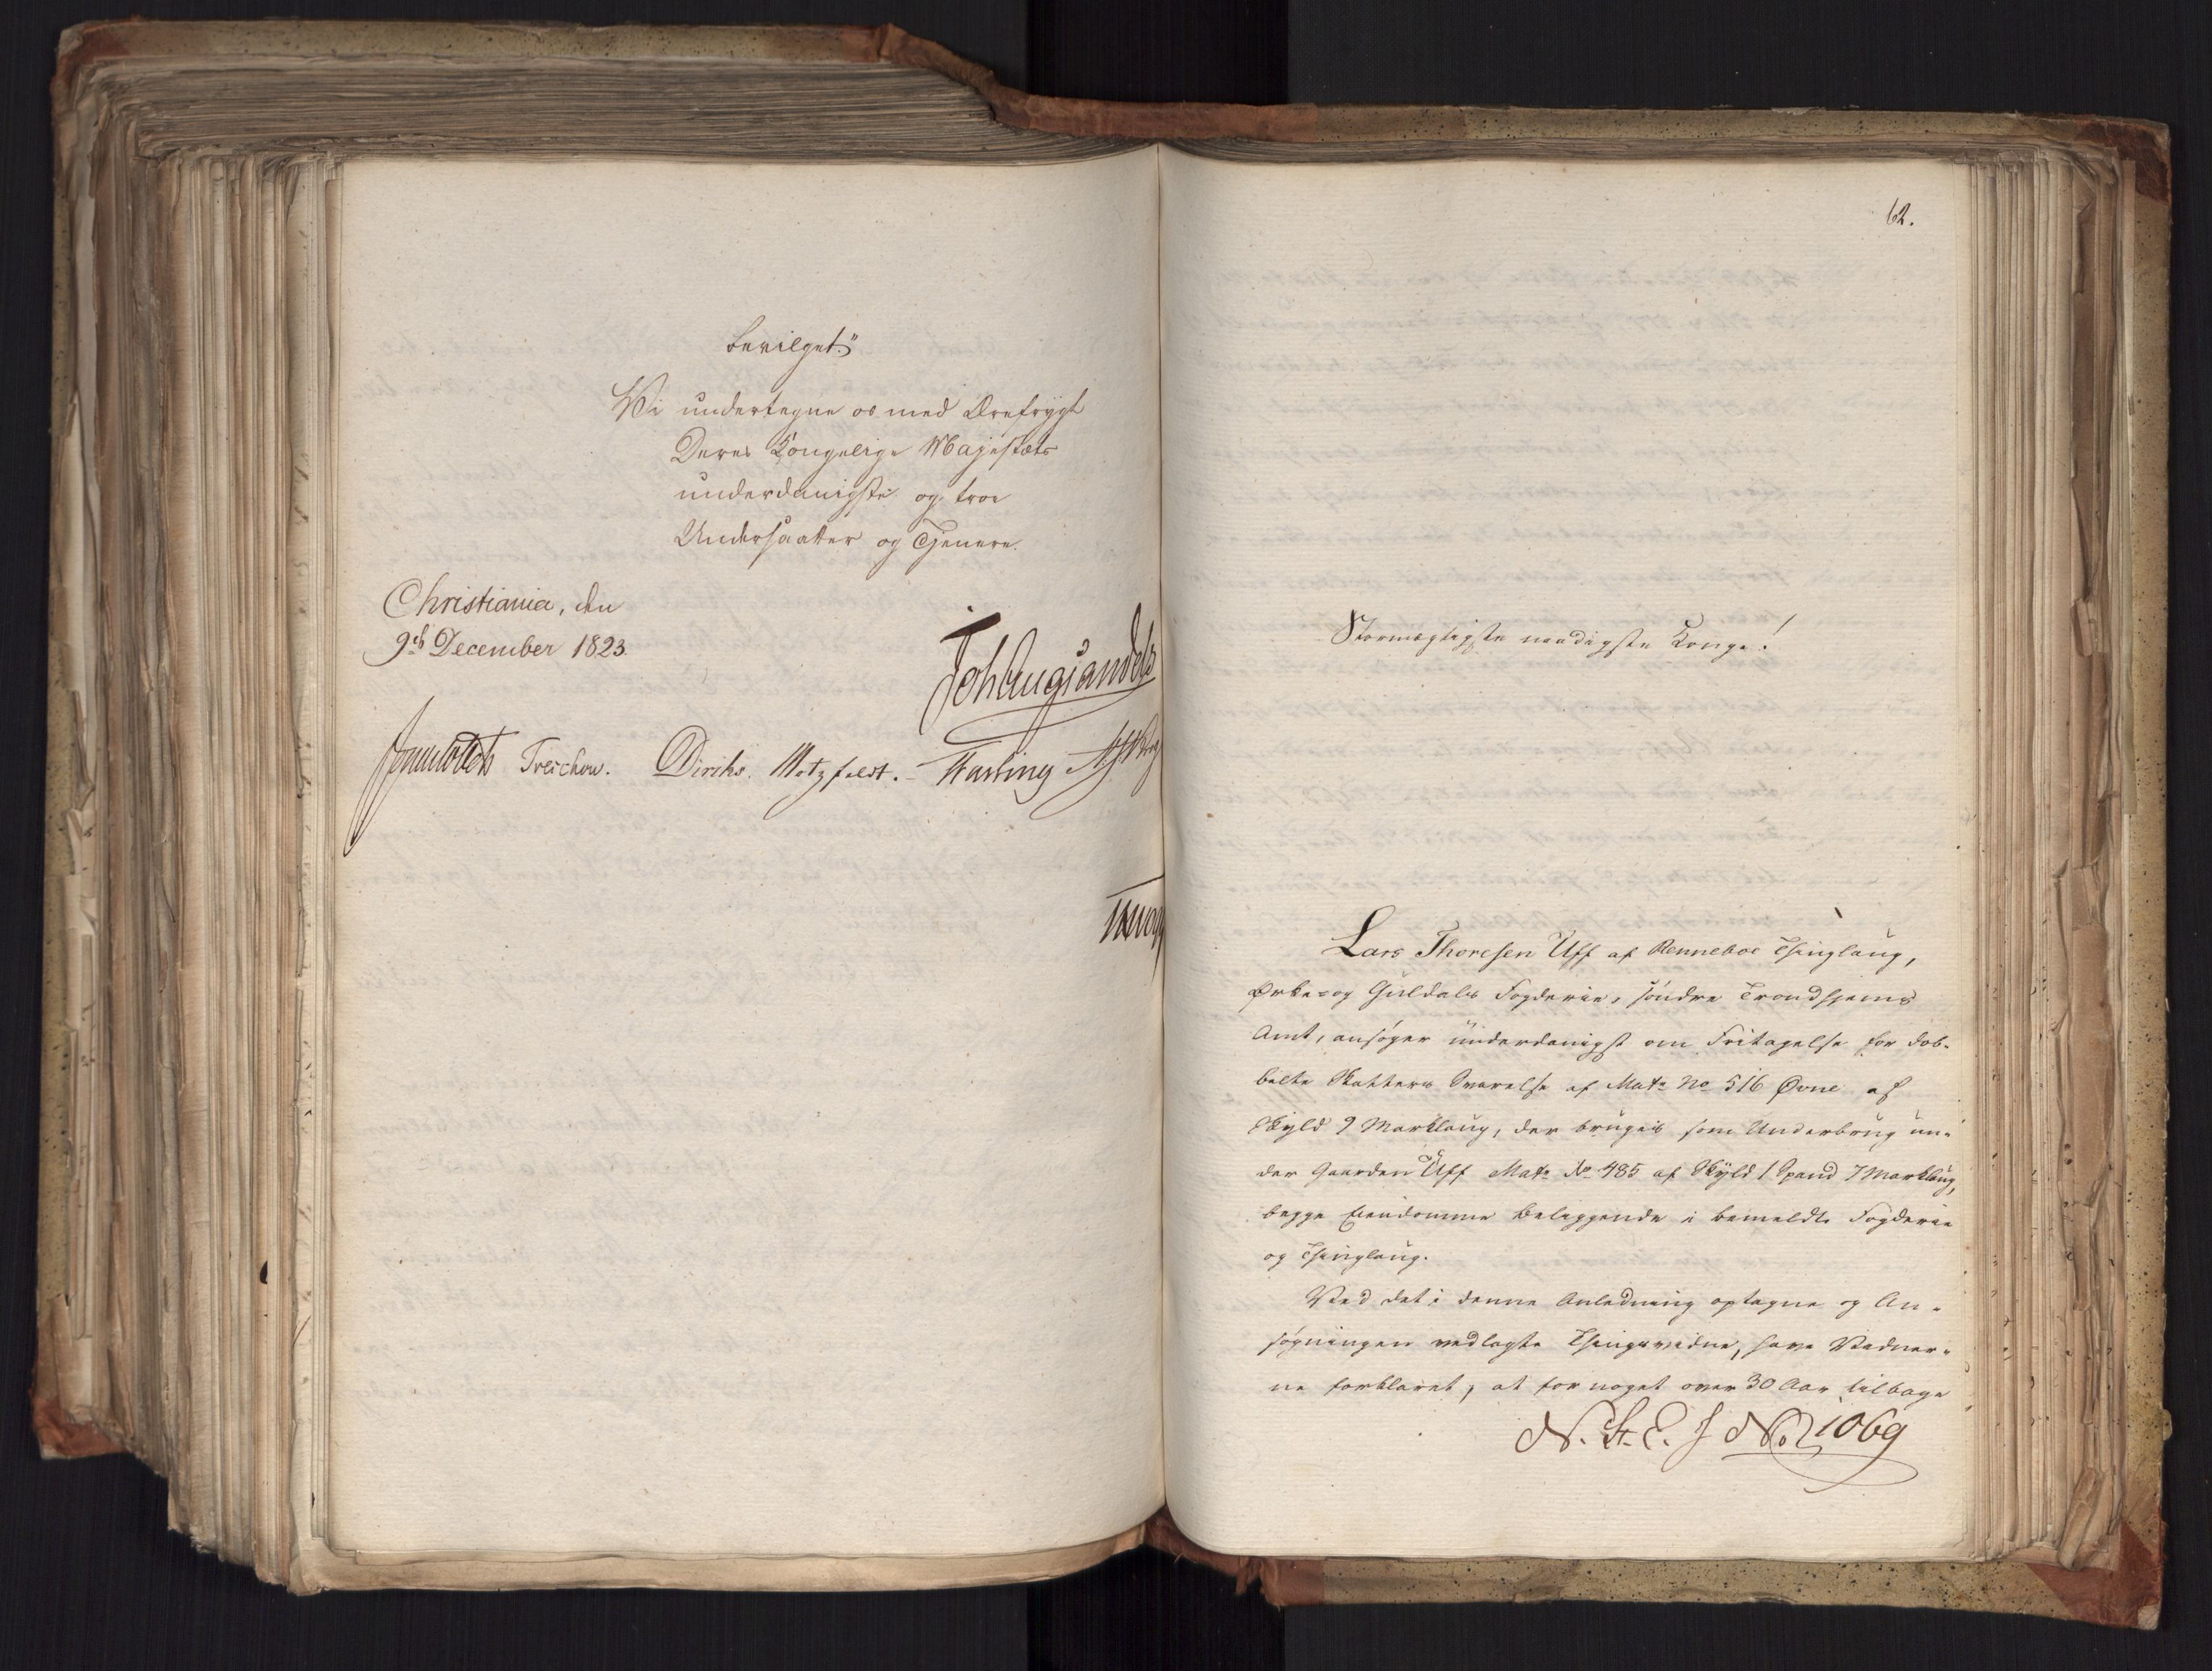 bevilget."
Vi undertegne os med Ærefrygt
Deres Kongelige Majestæts
underdanigste og troe
Undersaatter og Tjenere.
Christiania, den
9de December 1823.
Joh Aug Sandels
Sommerhielm Treschow. Diriks. Motzfeldt. Fasting
62.
Stormægtigste naadigste Konge!
Lars Thoresen Uff af Renneboe Thinglaug,
Ørke- og Guldals Fogderie, søndre Trondhjems
Amt, ansøger underdanigst om Fritagelse for dob-
belte Skatters Svarelse af Matr No 516 Øvne af
Skyld 9 Marklaug, der bruges som Underbrug un-
der Gaarden Uff Matr No 485 af Skyld 1 Spand 7 Marklaug,
begge Eiendomme beliggende i bemeldte Fogderie
og Thinglaug.
Ved det i denne Anledning optagne og An-
søgningen vedlagte Thingsvidne, have Vidner-
ne forklaret, at for noget over 30 Aar tilbage
N. St. E. J No 1069